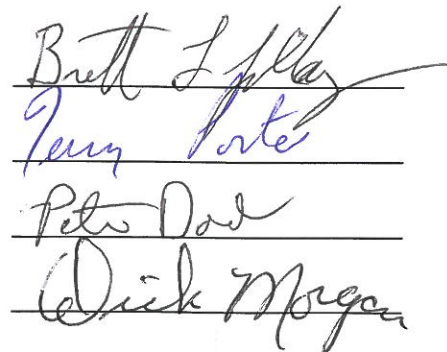 Brett
Terry Porter
Peter Dod
Dick Morgan